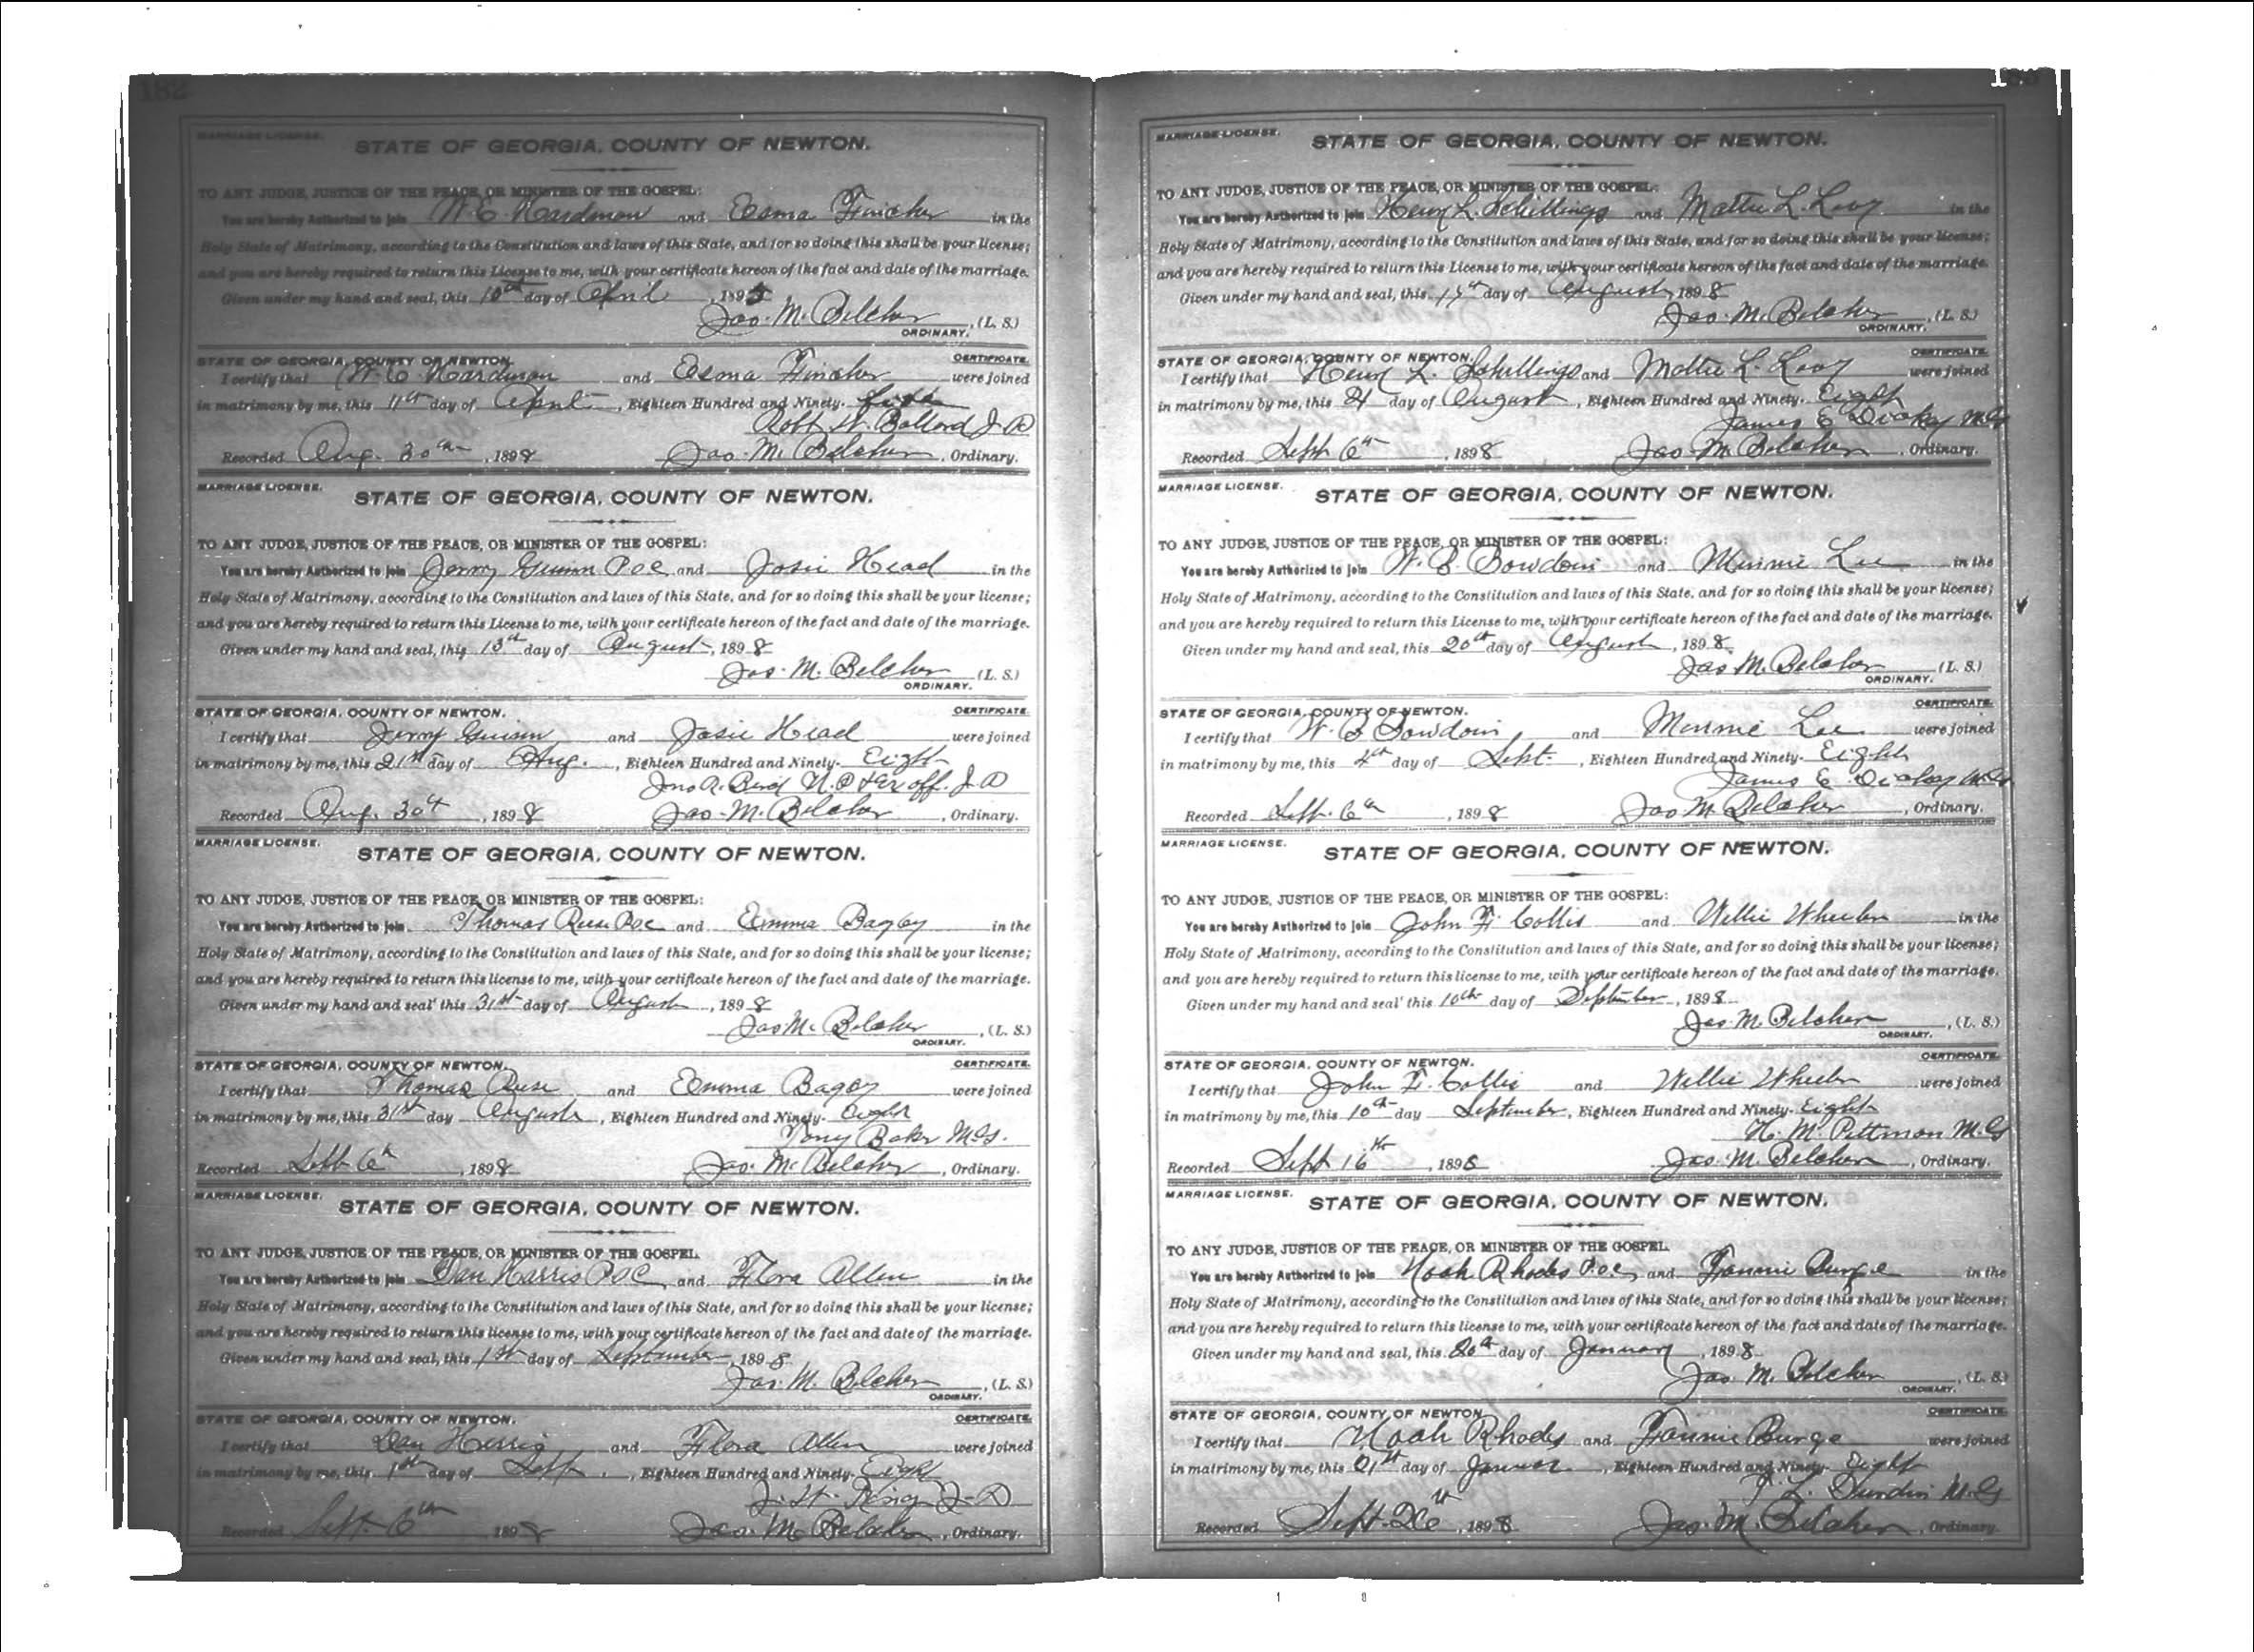 182
MARRIAGE LICENSE.
STATE OF GEORGIA, COUNTY OF NEWTON.
TO ANY JUDGE, JUSTICE OF THE PEACE, OR MINISTER OF THE GOSPEL:
You are hereby Authorized to join W. E. Hardman and Esma Fincher in the
Holy State of Matrimony, according to the Constitution and laws of this State, and for so doing this shall be your license;
and you are hereby required to return this License to me, with your certificate hereon of the fact and date of the marriage.
Given under my hand and seal, this 10th day of April, 1895
Jas. M. Belcher, (L. S.)
ORDINARY.
STATE OF GEORGIA, COUNTY OF NEWTON. CERTIFICATE.
I certify that W. E. Hardman and Esma Fincher were joined
in matrimony by me, this 11th day of April, Eighteen Hundred and Ninety-
Robt. W. Ballard J. P.
Recorded Aug. 30th, 1898 Jas. M. Belcher, Ordinary.
MARRIAGE LICENSE.
STATE OF GEORGIA, COUNTY OF NEWTON.
TO ANY JUDGE, JUSTICE OF THE PEACE, OR MINISTER OF THE GOSPEL:
You are hereby Authorized to join Jerry Guinn Poc and Josie Head in the
Holy State of Matrimony, according to the Constitution and laws of this State, and for so doing this shall be your license;
and you are hereby required to return this License to me, with your certificate hereon of the fact and date of the marriage.
Given under my hand and seal, this 13th day of August, 1898
Jas. M. Belcher (L. S.)
ORDINARY.
STATE OF GEORGIA, COUNTY OF NEWTON. CERTIFICATE.
I certify that Jerry Guinn and Josie Head were joined
in matrimony by me, this 21st day of Aug., Eighteen Hundred and Ninety- Eight
Jno. A. Bird N. P. & Ex off. J. P.
Recorded Aug. 30th, 1898 Jas. M. Belcher, Ordinary.
MARRIAGE LICENSE.
STATE OF GEORGIA, COUNTY OF NEWTON.
TO ANY JUDGE, JUSTICE OF THE PEACE, OR MINISTER OF THE GOSPEL:
You are hereby Authorized to join Thomas Reese Poc and Emma Bagby in the
Holy State of Matrimony, according to the Constitution and laws of this State, and for so doing this shall be your license;
and you are hereby required to return this license to me, with your certificate hereon of the fact and date of the marriage.
Given under my hand and seal this 31st day of August, 1898
Jas M. Belcher, (L. S.)
ORDINARY.
STATE OF GEORGIA, COUNTY OF NEWTON. CERTIFICATE.
I certify that Thomas Reese and Emma Bagby were joined
in matrimony by me, this 31st day August, Eighteen Hundred and Ninety- Eight
Tony Baker M. G.
Recorded Sept 6th, 1898 Jas. M. Belcher, Ordinary.
MARRIAGE LICENSE.
STATE OF GEORGIA, COUNTY OF NEWTON.
TO ANY JUDGE, JUSTICE OF THE PEACE, OR MINISTER OF THE GOSPEL
You are hereby Authorized to join Dan Harris Poc and Flora Allen in the
Holy State of Matrimony, according to the Constitution and laws of this State, and for so doing this shall be your license;
and you are hereby required to return this license to me, with your certificate hereon of the fact and date of the marriage.
Given under my hand and seal, this 1st day of September, 1898
Jas. M. Belcher, (L. S.)
ORDINARY.
STATE OF GEORGIA, COUNTY OF NEWTON. CERTIFICATE.
I certify that Dan Harris and Flora Allen were joined
in matrimony by me, this 1st day of Sept., Eighteen Hundred and Ninety- Eight
J. W. King J. P.
Recorded Sept. 6th 1898 Jas. M. Belcher, Ordinary.
MARRIAGE LICENSE.
STATE OF GEORGIA, COUNTY OF NEWTON.
TO ANY JUDGE, JUSTICE OF THE PEACE, OR MINISTER OF THE GOSPEL:
You are hereby Authorized to join Henry L. Schillings and Mattie L. Livy in the
Holy State of Matrimony, according to the Constitution and laws of this State, and for so doing this shall be your license;
and you are hereby required to return this License to me, with your certificate hereon of the fact and date of the marriage.
Given under my hand and seal, this day of August, 1898
Jas. M. Belcher, (L. S.)
ORDINARY.
STATE OF GEORGIA, COUNTY OF NEWTON. CERTIFICATE.
I certify that Henry L. Schillings and Mattie L. were joined
in matrimony by me, this 21 day of August, Eighteen Hundred and Ninety- Eight
James E Dickey M. G.
Recorded Sept 6th, 1898 Jas M. Belcher, Ordinary.
MARRIAGE LICENSE.
STATE OF GEORGIA, COUNTY OF NEWTON.
TO ANY JUDGE, JUSTICE OF THE PEACE, OR MINISTER OF THE GOSPEL:
You are hereby Authorized to join W. B. Bowdoin and Minnie Lee in the
Holy State of Matrimony, according to the Constitution and laws of this State, and for so doing this shall be your license;
and you are hereby required to return this License to me, with your certificate hereon of the fact and date of the marriage.
Given under my hand and seal, this 20th day of August, 1898
Jas M. Belcher (L. S.)
ORDINARY.
STATE OF GEORGIA, COUNTY OF NEWTON. CERTIFICATE.
I certify that W. B. Bowdoin and Minnie Lee were joined
in matrimony by me, this 4th day of Sept., Eighteen Hundred and Ninety- Eight
James E. Dickey M. G.
Recorded Sept. 6th, 1898 Jas M. Belcher, Ordinary.
MARRIAGE LICENSE.
STATE OF GEORGIA, COUNTY OF NEWTON.
TO ANY JUDGE, JUSTICE OF THE PEACE, OR MINISTER OF THE GOSPEL:
You are hereby Authorized to join John F. Collis and Willie Wheeler in the
Holy State of Matrimony, according to the Constitution and laws of this State, and for so doing this shall be your license;
and you are hereby required to return this license to me, with your certificate hereon of the fact and date of the marriage.
Given under my hand and seal this 10th day of September, 1898
Jas. M. Belcher, (L. S.)
ORDINARY.
STATE OF GEORGIA, COUNTY OF NEWTON. CERTIFICATE.
I certify that John F. Collis and Willie Wheeler were joined
in matrimony by me, this 10th day September, Eighteen Hundred and Ninety- Eight
H. M. Pittman M. G
Recorded Sept 16th, 1898 Jas. M. Belcher, Ordinary.
MARRIAGE LICENSE.
STATE OF GEORGIA, COUNTY OF NEWTON.
TO ANY JUDGE, JUSTICE OF THE PEACE, OR MINISTER OF THE GOSPEL
You are hereby Authorized to join Noah Rhodes Poc, and Fannie Burge in the
Holy State of Matrimony, according to the Constitution and laws of this State, and for so doing this shall be your license;
and you are hereby required to return this license to me, with your certificate hereon of the fact and date of the marriage.
Given under my hand and seal, this 20th day of January, 1898
Jas. M. Belcher, (L. S.)
ORDINARY.
STATE OF GEORGIA, COUNTY OF NEWTON. CERTIFICATE.
I certify that Noah Rhodes and Fannie Burge were joined
in matrimony by me, this 21st day of Januar, Eighteen Hundred and Ninety- Eight
L. Durdin M. G
Recorded Sept. 26th, 1898 Jas. M. Belcher, Ordinary.